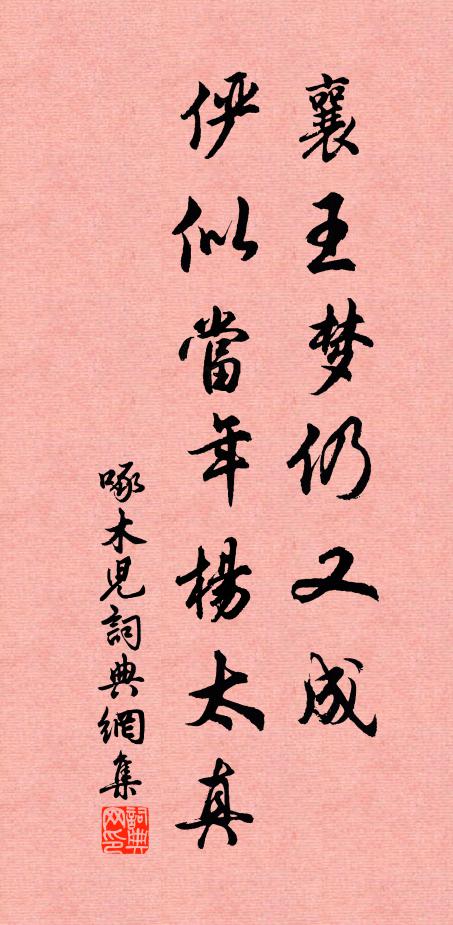 襄王梦仍又成
俨似當年楊太真
啄木児詞典網集
詞典
网印